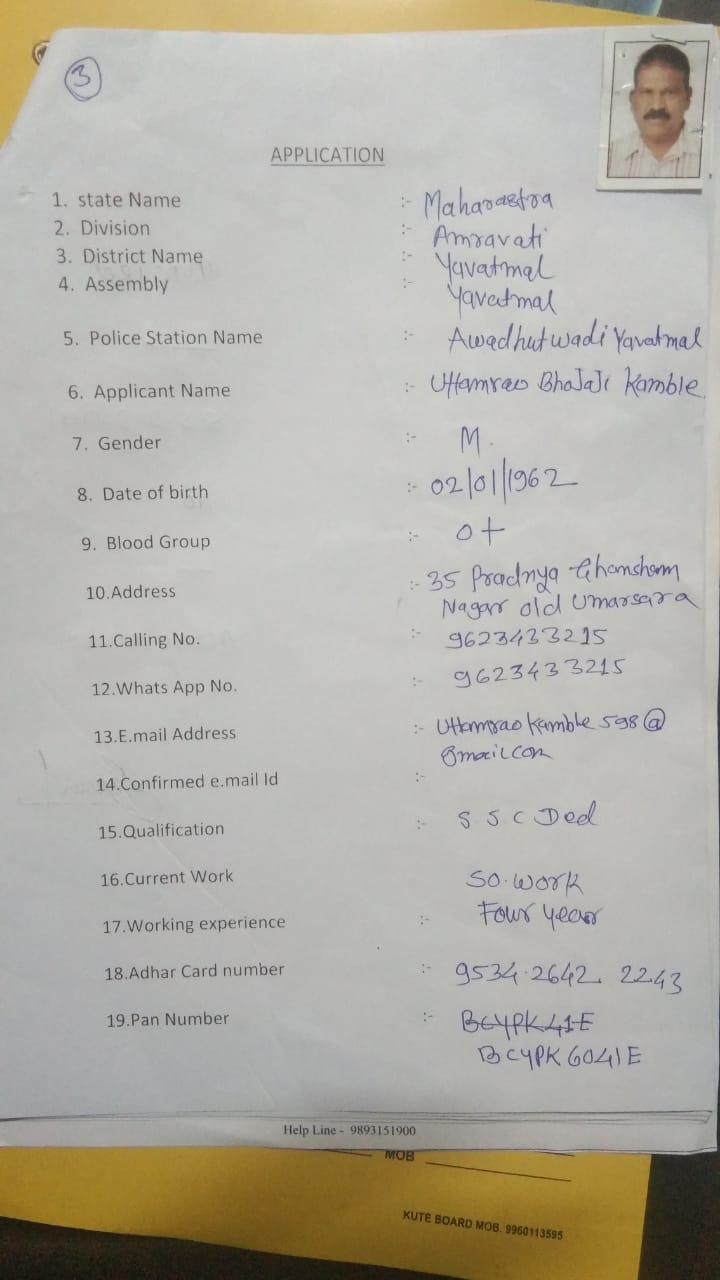 3
APPLICATION
1. state Name :- Maharastra
2. Division :- Amravati
3. District Name :- Yavatmal
4. Assembly :- Yavatmal
5. Police Station Name :- Awadhutwadi Yavatmal
6. Applicant Name :- Uttamrao BhaJaJi Kamble
7. Gender :- M.
8. Date of birth :- 02/01/1962
9. Blood Group :- O+
10.Address :- 35 Pradnya Ghansham
Nagar old Umarsara
11.Calling No. :- 9623433215
12.Whats App No. :- 9623433215
13.E.mail Address :- Uttamrao Kamble 598@
gmail.com
14.Confirmed e.mail Id :-
15.Qualification :- S S C Ded
16.Current Work SO. work
17.Working experience :- Four year
18.Adhar Card number :- 9534 2642 2243
19.Pan Number :- BCYPK41E
BCYPK6041E
Help Line - 9893151900
MOB
KUTE BOARD MOB. 9960113595